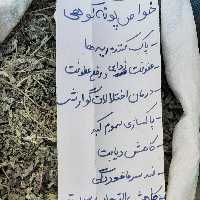 خواص پونه کوهی
- پاک کننده ریه ها
- عفونت زدایی و رفع عفونت
- درمان اختلالات گوارشی
- پاکسازی سموم کبد
- کاهش دیابت
- ضد سرماخوردگی
- کاهش التهابات